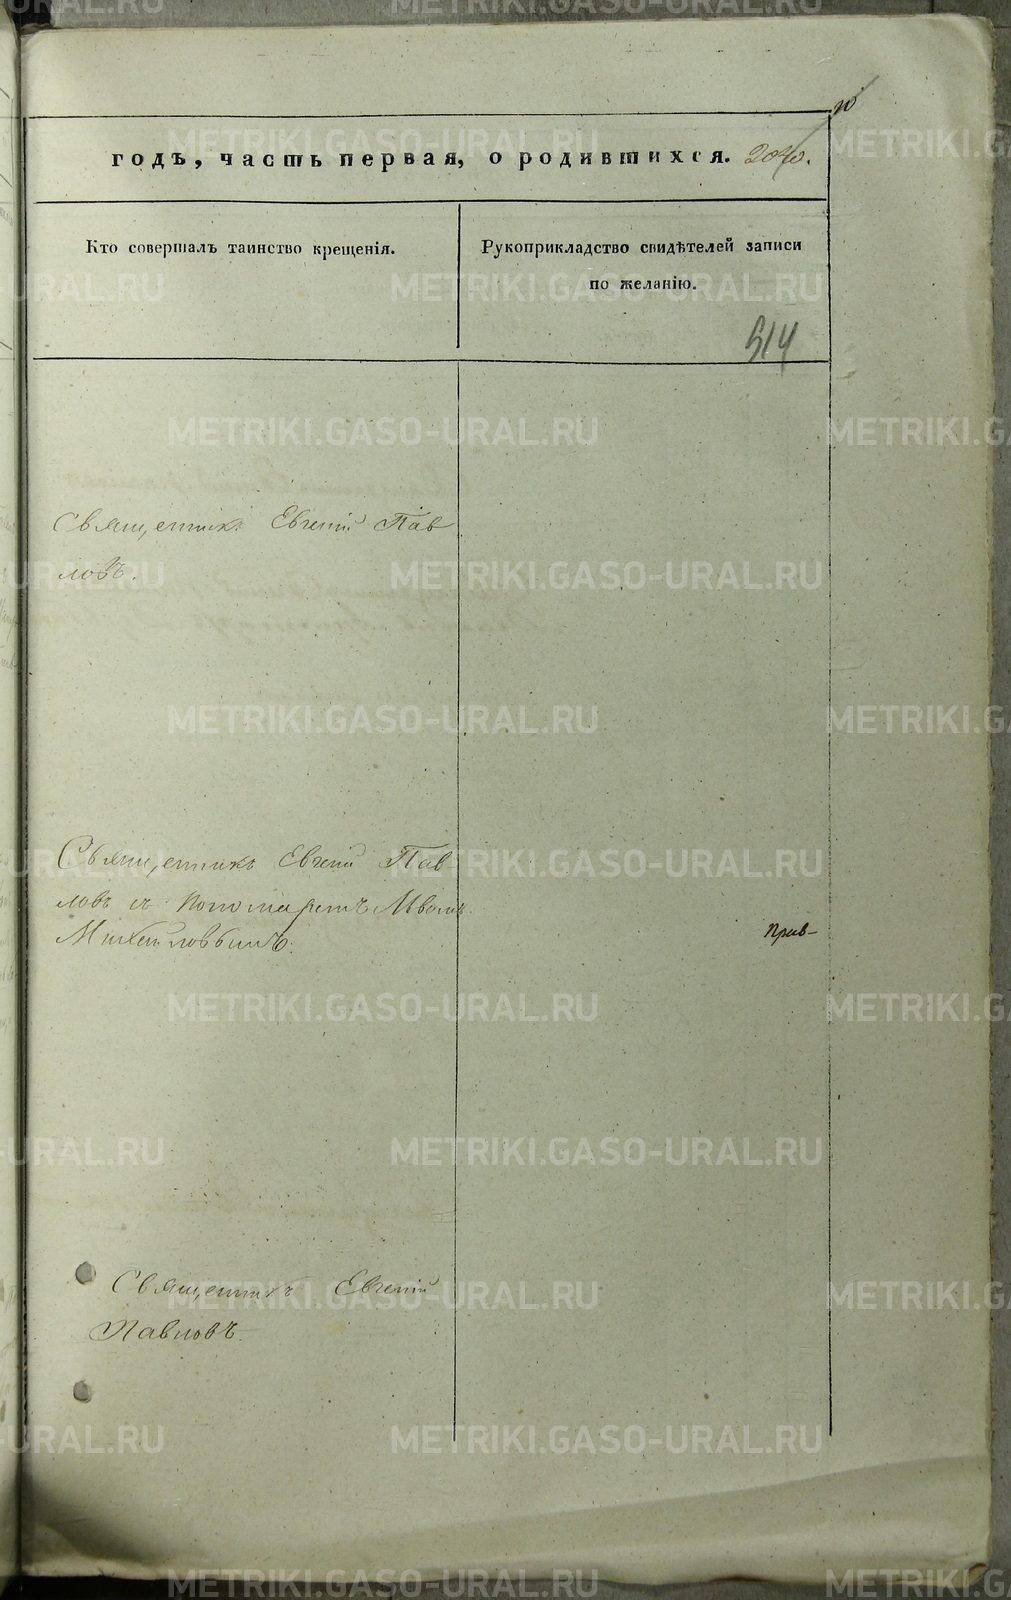 годъ, часть первая, о родившихся.
Кто совершалъ таинство крещенія.
Рукоприкладство свидѣтелей записи
по желанію.
514
Священникъ Евгеній Пав
ловъ.
Священникъ Евгеній Пав
ловъ съ Пономаремъ Ивомъ
Михайловымъ.
Прив-
Священникъ Евгеній
Павловъ.
METRIKI.GASO-URAL.RU